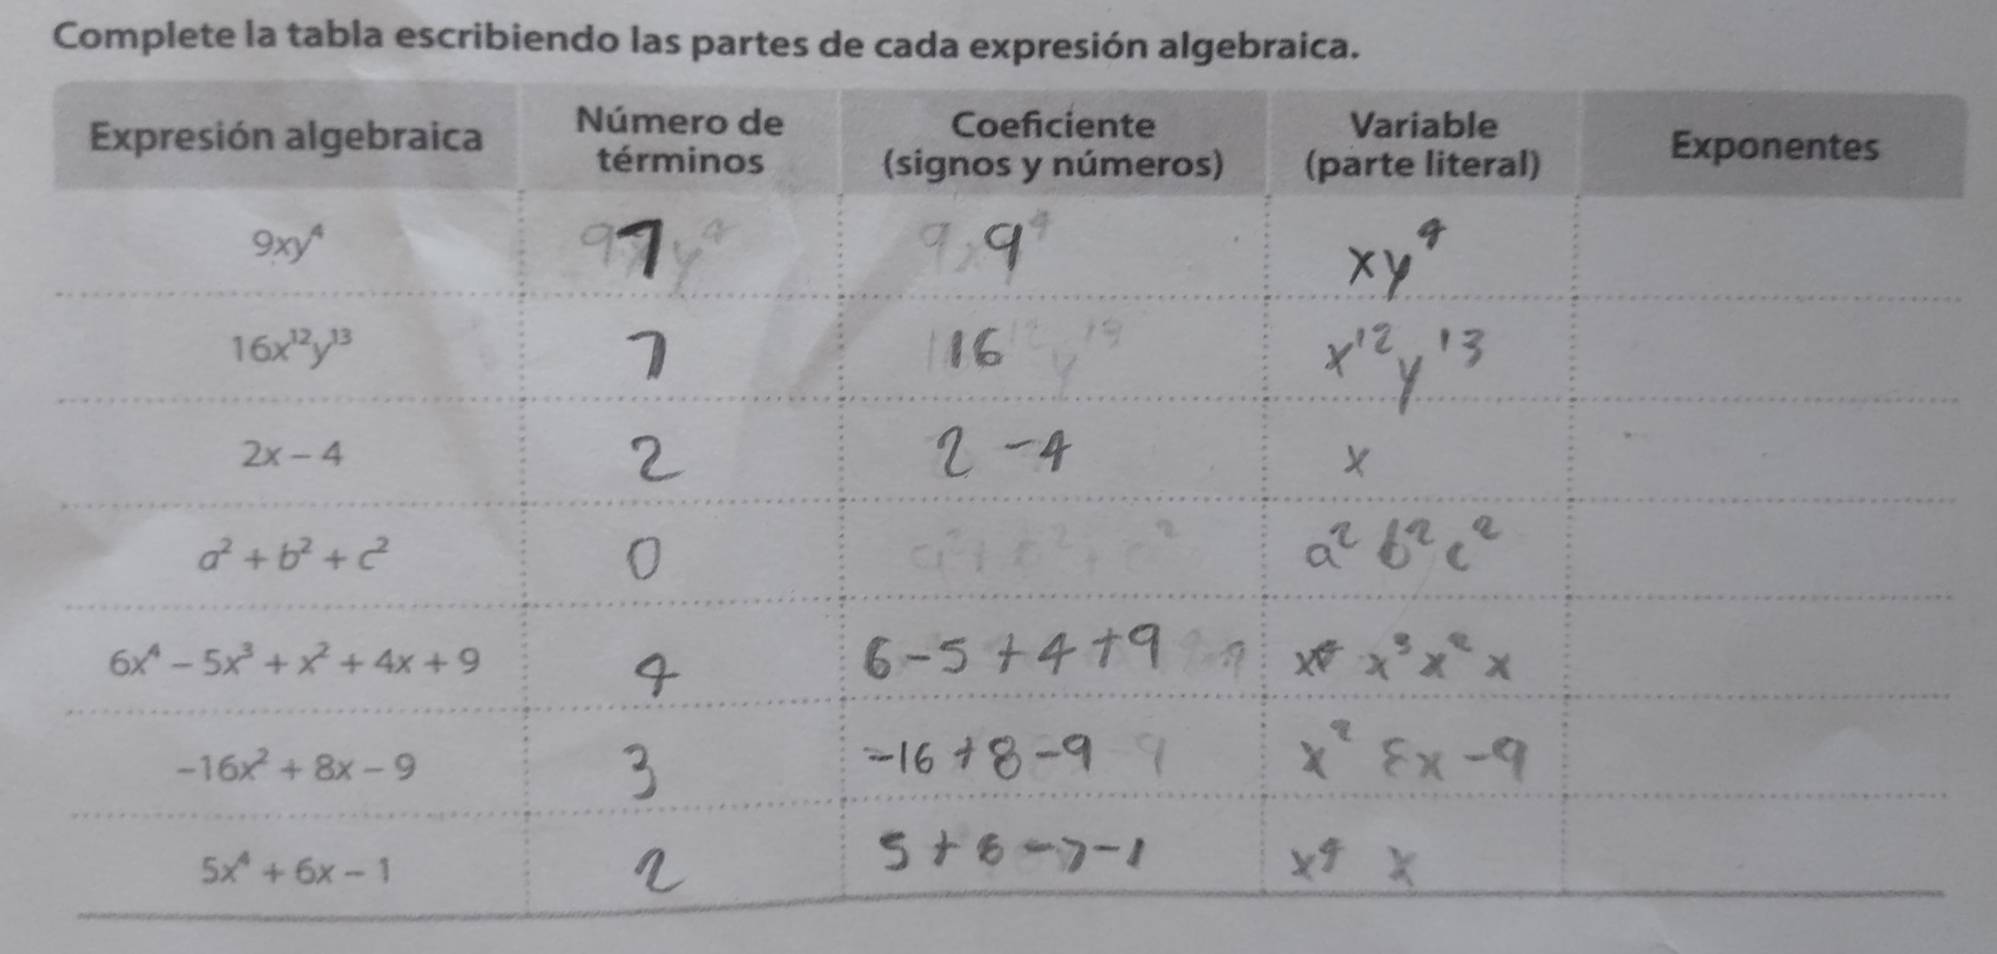 Complete la tabla escribiendo las partes de cada expresión algebraica.
Expresión algebraica Número de términos Coeficiente (signos y números) Variable (parte literal) Exponentes
9xy⁴ 7 9 xy⁴
16x¹²y¹³ 7 16 x¹²y¹³
2x – 4 2 2 -4 x
a² + b² + c² 0 a² b² c²
6x⁴ – 5x³ + x² + 4x + 9 4 6-5+4+9 x⁴ x³ x² x
–16x² + 8x – 9 3 -16+8-9 x² 8x-9
5x⁴ + 6x – 1 2 5+6-7-1 x⁴ x